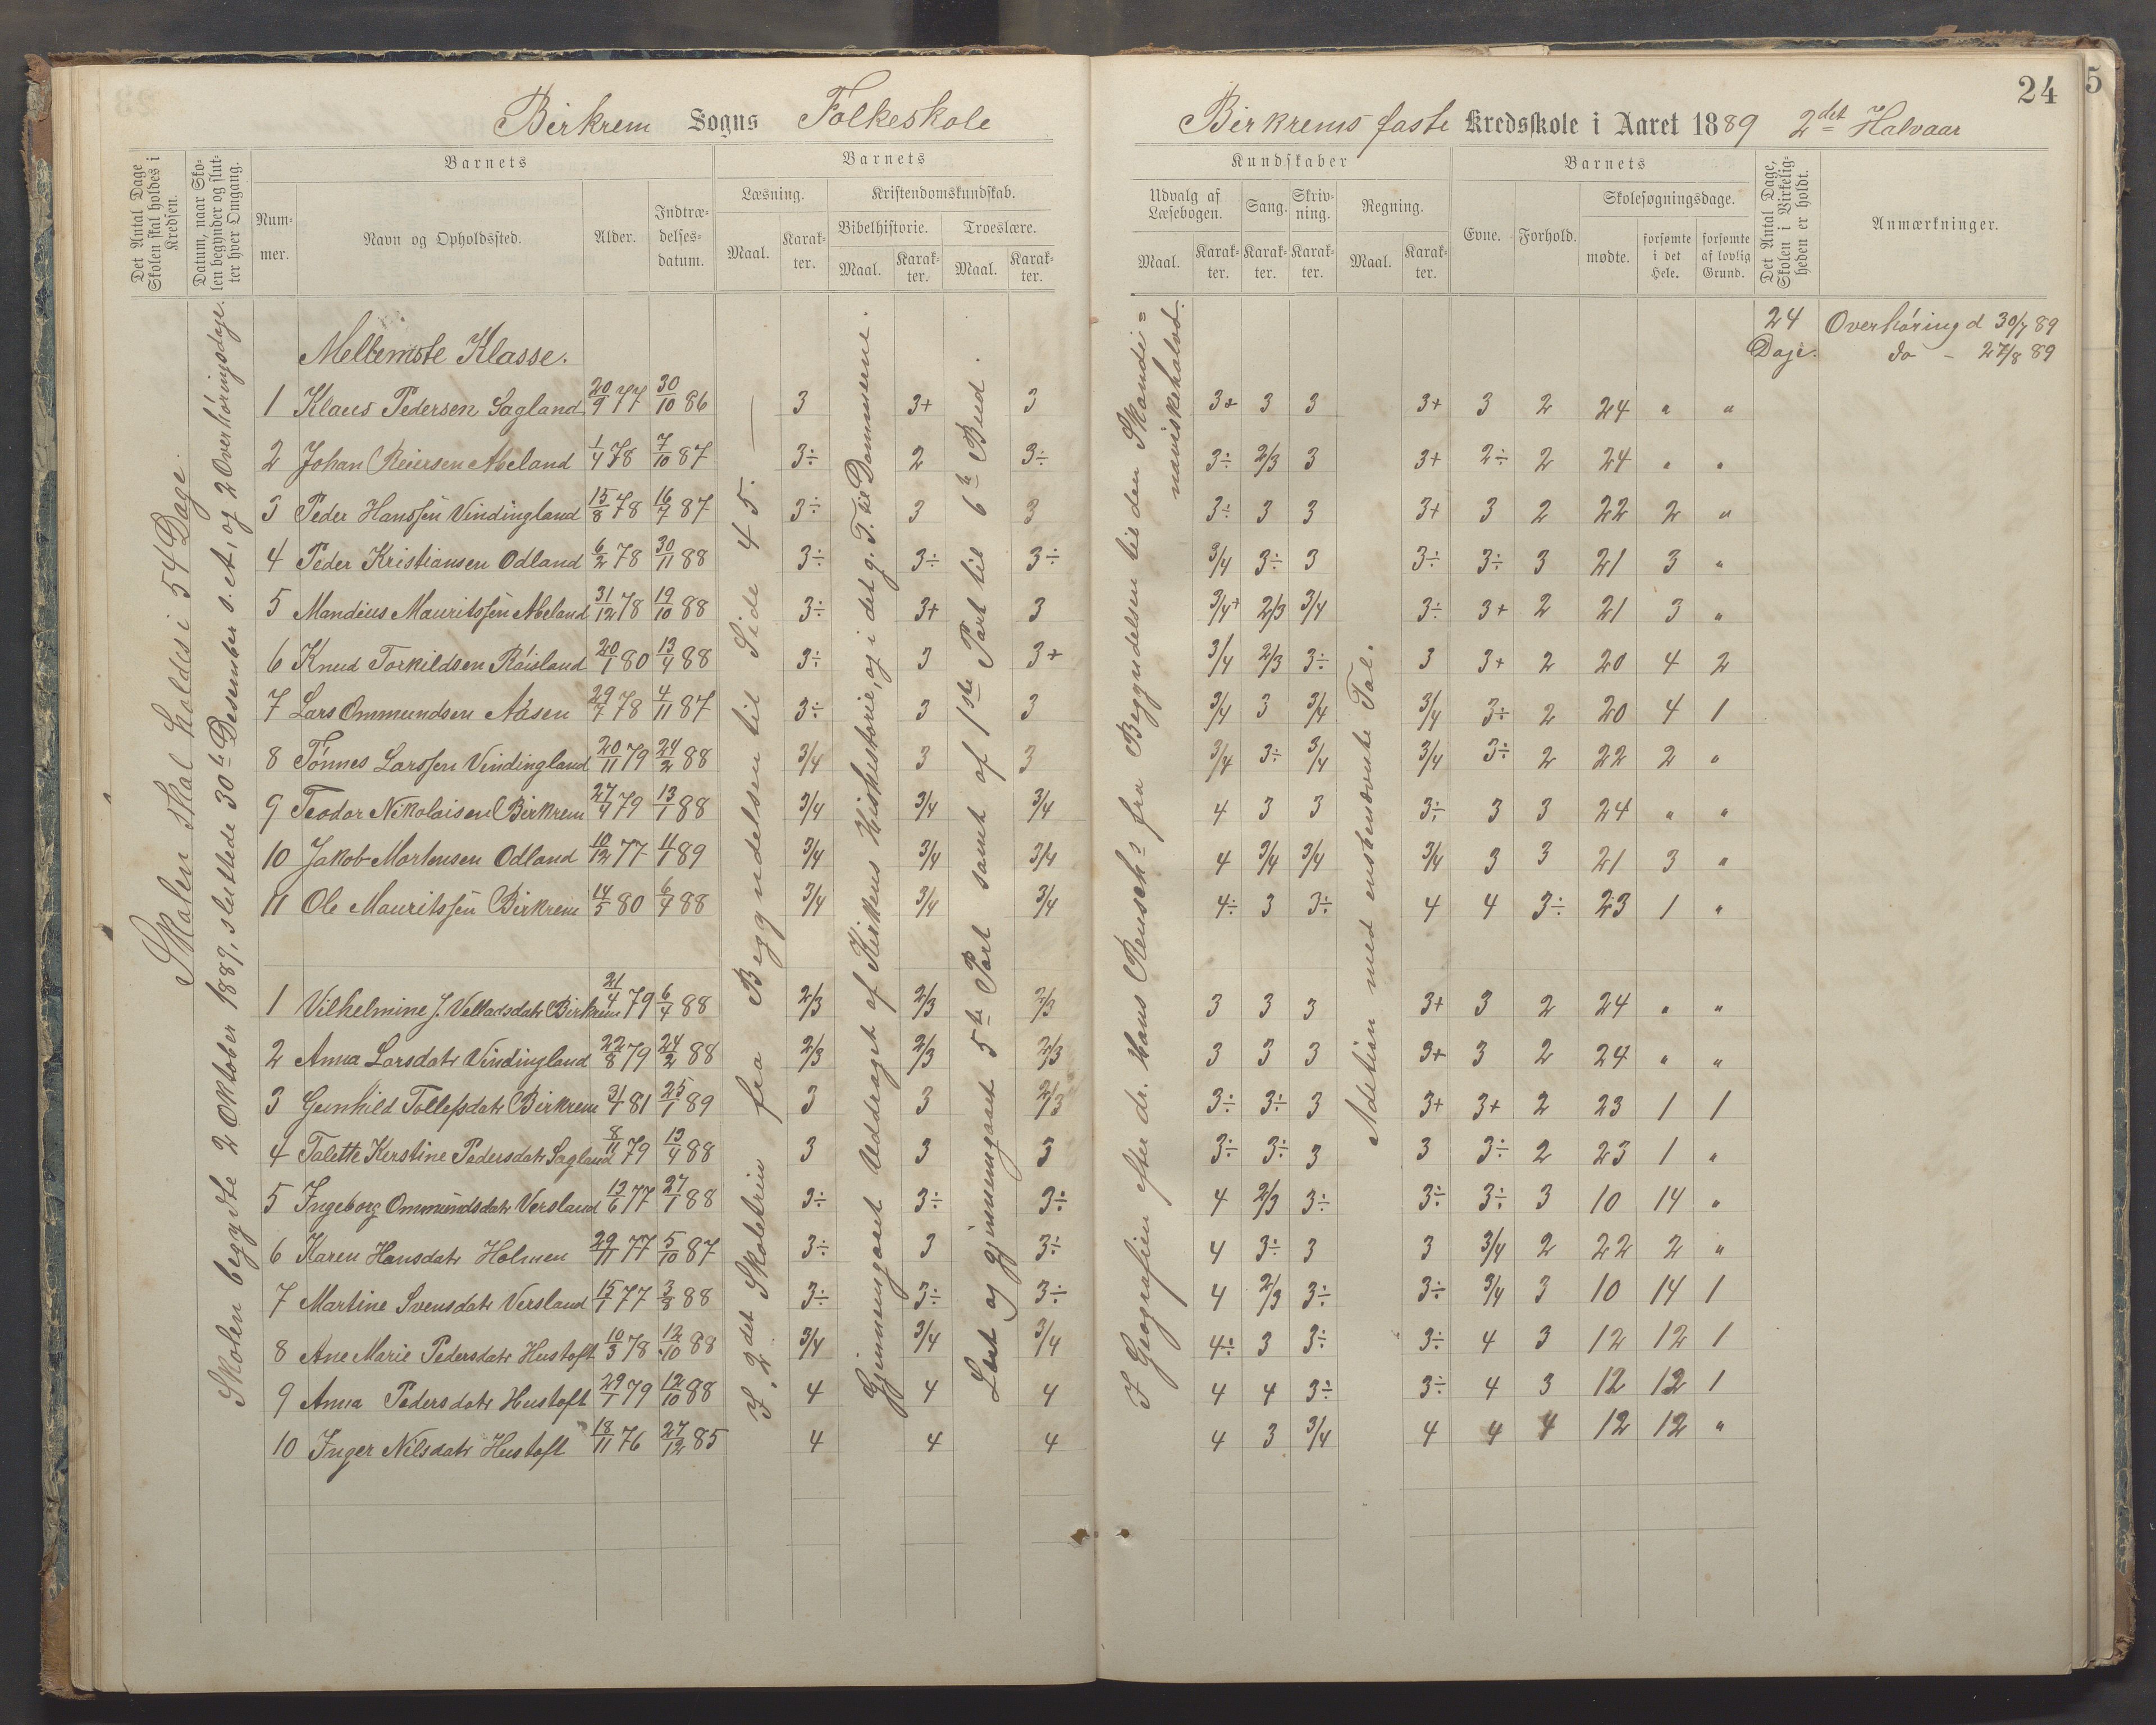 24
5
Birkrem Sogns Folkeskole
Birkrems faste Kredsskole i Aaret 1889 2det Halvaar
Det Antal Dage Skolen skal holdes i Kredsen.
Datum, naar Skolen begynder og slutter hver Omgang.
Barnets
Nummer.
Navn og Opholdssted.
Alder.
Indtrædelsesdatum.
Barnets
Læsning.
Maal.
Karakter.
Kristendomskundskab.
Bibelhistorie.
Maal.
Karakter.
Troeslære.
Maal.
Karakter.
Kundskaber
Udvalg af Læsebogen.
Maal.
Karakter.
Sang.
Karakter.
Skrivning.
Karakter.
Regning.
Maal.
Karakter.
Barnets
Evne.
Forhold.
Skolesøgningsdage.
mødte.
forsømte i det Hele.
forsømte af lovlig Grund.
Det Antal Dage, Skolen i Virkeligheden er holdt.
Anmærkninger.
Skolen skal holdes i 54 Dage.
Skolen begyndte 2 Oktober 1889, sluttede 30te Desember s. A, og 2 Overhøringsdage.
I 2det Skoletrin fra Begyndelsen til Side 45.
Gjennemgaaet Uddraget af Kirkens Hististorie, og i det g. T. til Dommerne.
Læst og gjennemgaaet 5te Part samt af 1ste Part til 6te Bud.
I Geografien efter dr. Hans Reusch's fra Begyndelsen til den Skandinaviskehalvø.
Adetion med enskensævnte Tal.
24 Dage.
Overhøring d 30/7 89
do - 27/8 89
Mellemste Klasse.
1 Klaus Pedersen Sagland 20/9 77 30/10 86 3 3+ 3 3+ 3 3 3+ 3 2 24 " "
2 Johan Reiersen Abeland 1/4 78 7/10 87 3÷ 2 3÷ 3÷ 2/3 3 3+ 2÷ 2 24 " "
3 Peder Hanssen Vindingland 15/8 78 16/7 87 3÷ 3 3 3÷ 3 3 3+ 3 2 22 2 "
4 Peder Kristiansen Odland 6/2 78 30/11 88 3÷ 3÷ 3÷ 3/4 3÷ 3 3÷ 3÷ 3 21 3 "
5 Mandius Mauritssen Abeland 31/12 78 19/10 88 3÷ 3+ 3 3/4+ 2/3 3/4 3÷ 3+ 2 21 3 "
6 Knud Torkildsen Røisland 20/1 80 13/4 88 3÷ 3 3+ 3/4 2/3 3÷ 3 3+ 2 20 4 2
7 Lars Ommundsen Aasen 29/7 78 4/11 87 3÷ 3 3 3/4 3 3/4 3/4 3÷ 2 20 4 1
8 Tønnes Larssen Vindingland 20/11 79 24/2 88 3/4 3 3 3/4 3÷ 3/4 3/4 3÷ 2 22 2 "
9 Teodor Nikolaisen Birkrem 27/4 79 13/1 88 3/4 3/4 3/4 4 3 3 3÷ 3 3 24 " "
10 Jakob Mortensen Odland 10/12 77 11/1 89 3/4 3/4 3/4 4 3/4 3/4 3/4 3 3 21 3 "
11 Ole Mauritssen Birkrem 14/5 80 6/7 88 3/4 3/4 3/4 4÷ 3 3÷ 4 4 3÷ 23 1 "
1 Vilhelmine J. Velladsdatr Birkrem 21/4 79 6/7 88 2/3 2/3 2/3 3 3 3 3+ 3 2 24 " "
2 Anna Larsdatr Vindingland 22/8 79 24/2 88 2/3 2/3 2/3 3 3 3 3+ 3 2 24 " "
3 Gunhild Tollefsdatr Birkrem 31/1 81 25/1 89 3 3 2/3 3÷ 3÷ 3 3+ 3+ 2 23 1 1
4 Talette Kerstine Pedersdatr Sagland 8/11 79 13/4 88 3 3 3 3÷ 3÷ 3 3 3÷ 2 23 1 "
5 Ingeborg Ommundsdatr Versland 13/6 77 27/1 88 3÷ 3÷ 3÷ 4 2/3 3÷ 3÷ 3÷ 3 10 14 "
6 Karen Hansdatr Holmen 29/11 77 5/10 87 3÷ 3 3÷ 4 3÷ 3 3 3/4 2 22 2 "
7 Martine Svensdatr Versland 15/1 77 3/8 88 3÷ 3÷ 3÷ 4 2/3 3÷ 3÷ 3/4 3 10 14 1
8 Ane Marie Pedersdatr Hustoft 10/3 78 12/10 88 3/4 3/4 3/4 4÷ 3 3÷ 3÷ 4 3 12 12 1
9 Anna Pedersdatr Hustoft 29/1 79 12/10 88 4 4 4 4 4 3÷ 3÷ 4 3 12 12 1
10 Inger Nilsdatr Hustoft 18/11 76 27/12 85 4 4 4 4 3 3/4 4 4 4 12 12 "